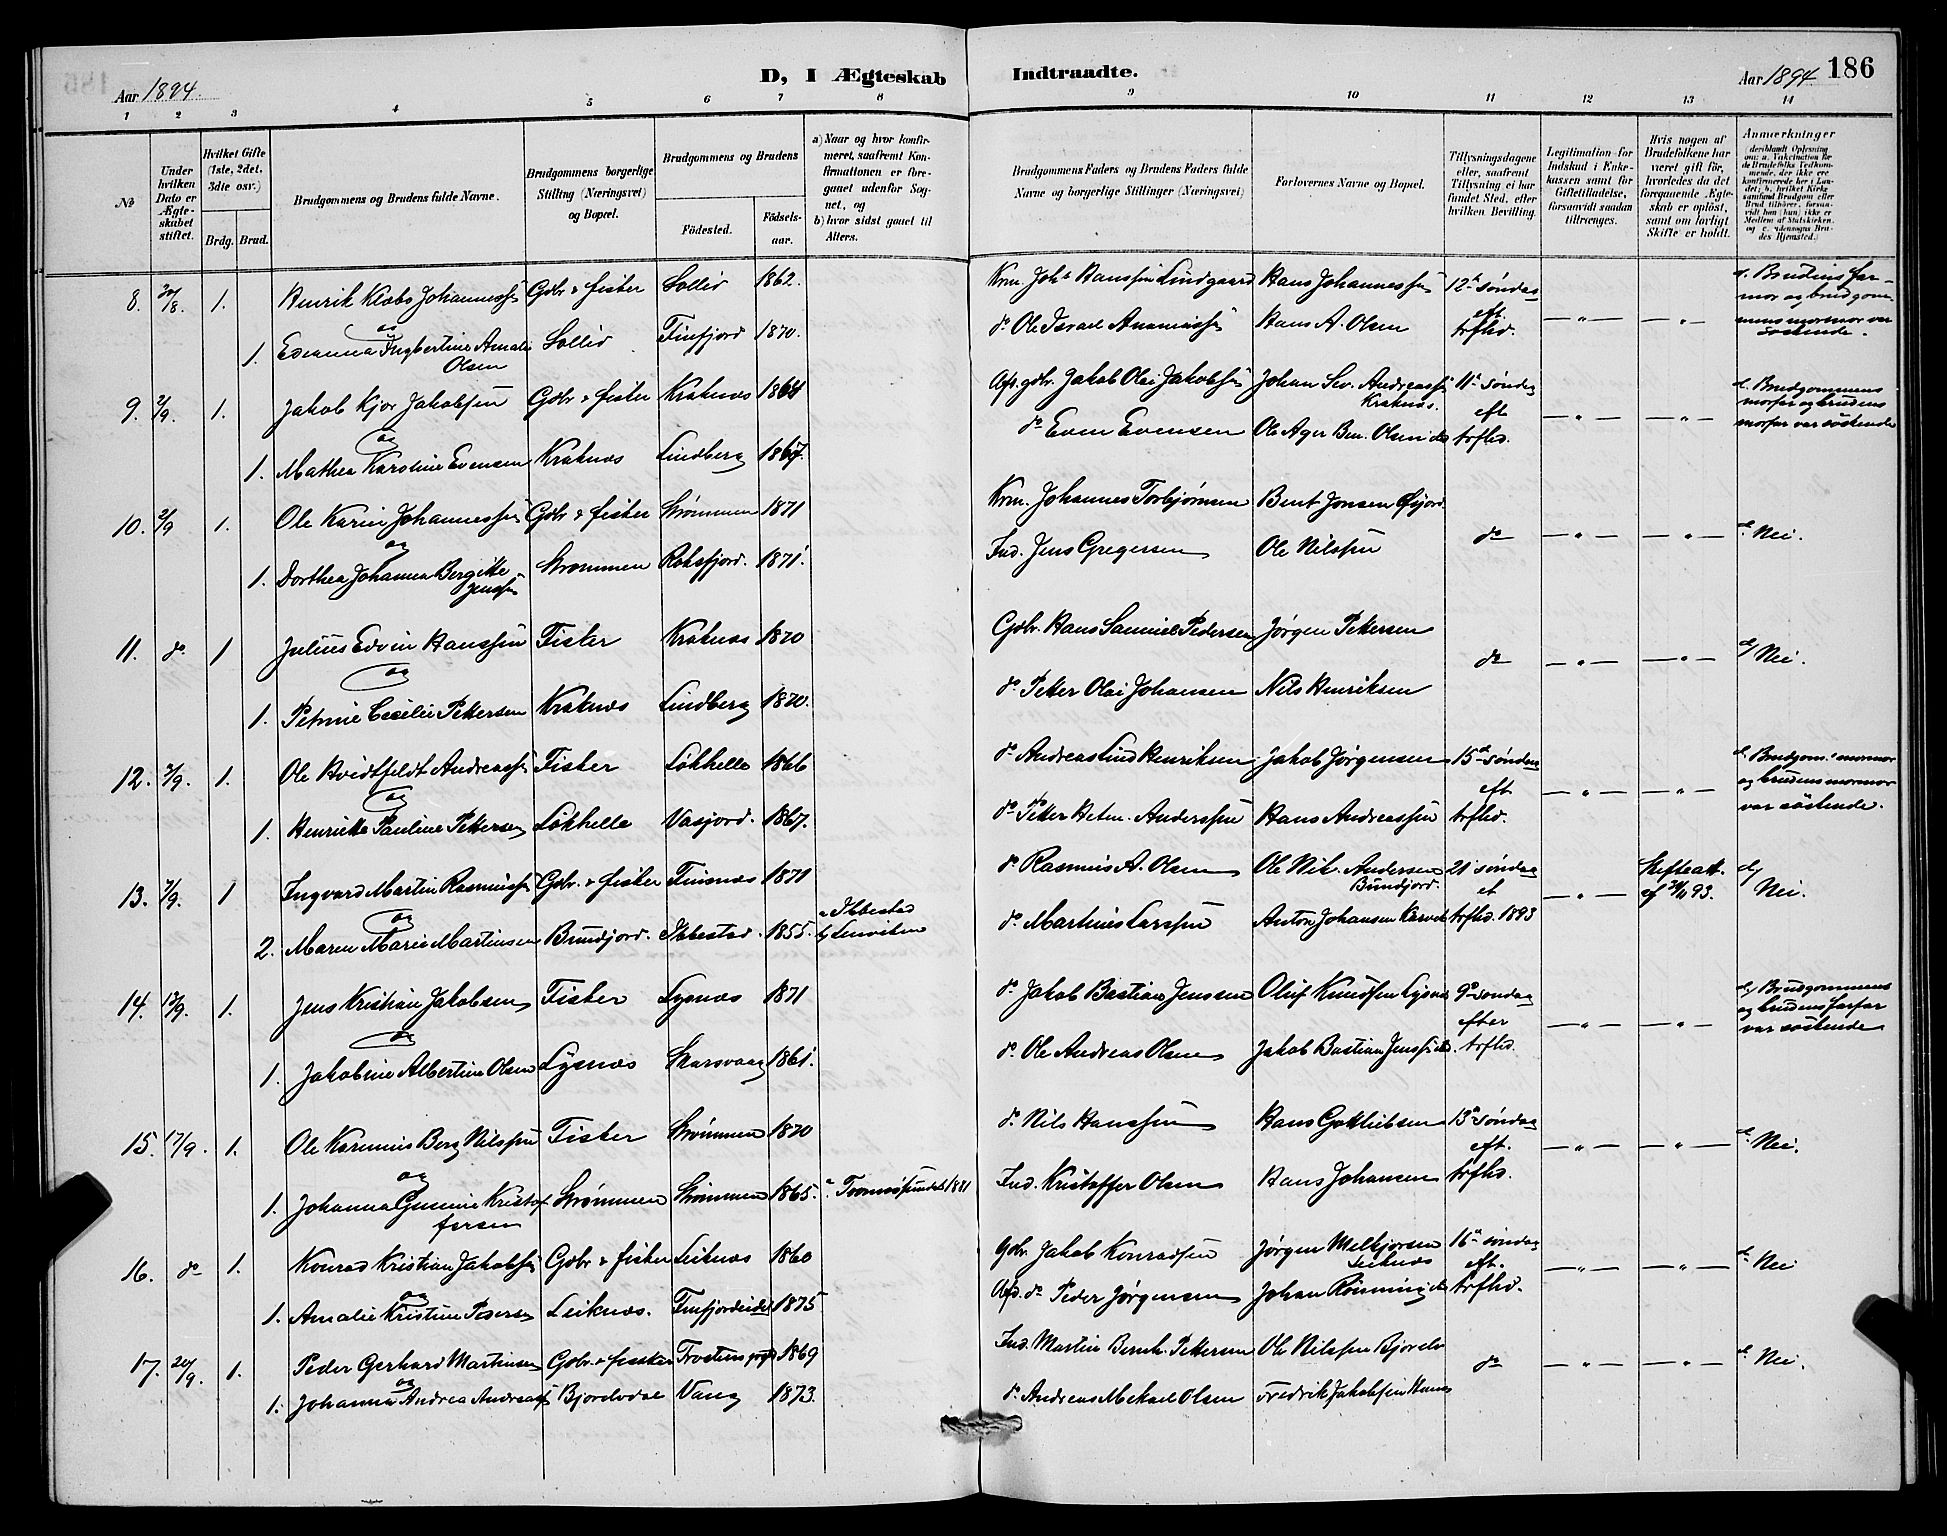 D, I Ægteskab Indtraadte.
186
Aar 1894.
Aar 1894.
1 2 3 4 5 6 7 8 9 10 11 12 13 14
No
Under hvilken Dato er Ægteskabet stiftet.
Hvilket Gifte (1ste, 2det, 3die osv.)
Brdg. Brud.
Brudgommens og Brudens fulde Navne.
Brudgommens borgerlige Stilling (Næringsvei) og Bopæl.
Brudgommens og Brudens
Fødested.
Fødselsaar.
a) Naar og hvor konfirmeret, saafremt Konfirmationen er foregaaet udenfor Sognet, og
b) hvor sidst gaaet til Alters.
Brudgommens Faders og Brudens Faders fulde Navne og borgerlige Stillinger (Næringsvei)
Forlovernes Navne og Bopæl.
Tillysningsdagene eller, saafremt Tillysning ei har fundet Sted, efter hvilken Bevilling.
Legitimation for Indskud i Enkekassen samt for Giftetilladelse, forsaavidt saadan tiltrænges.
Hvis nogen af Brudefolkene har været gift før, hvorledes da det foregaaende Ægteskab er opløst, samt om lovligt Skifte er holdt.
Anmærkninger
8. 30/8. 1. Henrik Klæbo Johannessen Gdbr & fisker Sollid 1862. Krm. Johs Hanssen Lindgaard Hans Johannessen 12te søndag
og
1. Edianna Ingbertine Amalie Olsen Sollid Finfjord 1870. do Ole Israel Hans A. Olsen eft. trfhd. — " — — " — c. Brudens farmor og brudgommens mormor var søskende.
9. 2/9. 1. Jakob Kjer Jakobsen Gdbr & fisker Kraknæs 1868 Afs. gdbr. Jakob Olai Jakobsen Johan Sev. Andreassen Kraknæs. 11te søndag
og
1. Mathea Karoline Evensen Kraknæs Lindberg 1867. do Even Evensen Ole Ager Ben. Olsen do eft trfhd. — " — — " — c. Brudgommens morfar og brudens morfar var søskende
10. 2/9 1. Ole Johannessen Gdbr & fisker Strømmen 1871 Krm. Johannes Torbjørnsen Bent Jonsen Øijord
og
1. Dorthea Johanna Bergitte Jenssen Strømmen Roksfjord. 1871. Ind. Jens Gregersen Ole Nilssen do — " — — " — c. Nei.
11. do 1 Julius Edvin Hanssen Fisker Kraknæs 1870 Gdbr. Hans Samuel Pedersen Jørgen Pettersen
og
1. Petrine Cecilie Pettersen Kraknæs Lindberg 1870. do Petter Olai Johansen Nils Henriksen do — " — — " — c/ Nei.
12. 7/9. 1. Ole Hvidtfeldt Andreassen Fisker Løkhelle 1866 do Andreas Lind Henriksen Jakob Jørgensen 15de søndag
og
1. Henrikke Pauline Pettersen Løkhelle Vasjord. 1867. do Petter Anderssen Hans Andreassen eft trfhd. — " — — " — c. Brudgom. mormor og brudens mormor var søskende.
13. 7/9. 1 Ingvard Martin Rasmussen Gdbr. & fisker Finsnæs 1871 do Rasmus A. Olsen Ole Nik. Andersen Bundjord. 21 søndag
og
2. Maren Marie Martinsen Bundjord. Ibbestad. 1855. a Ibbestad b) Lenviken do Martines Larssen Anton Johansen et trfhd. 1893 — " — Skifteatt. af 93. c/ Nei.
14. 13/9. 1. Jens Kristian Jakobsen Fisker Lysnæs 1871 do Jakob Bastian Jenssen Oluf Knudsen Lysnæs 9de søndag
og
1. Jakobine Albertine Olsen Lysnæs Skarsvaag 1861. do Ole Andreas Olsen Jakob Bastian Jenssen do efter trfhd. — " — — " — c/ Brudgommens og brudens farfar var søskende
15. 17/9. 1. Ole Berg Nilssen Fisker Strømmen 1870 do Nils Hanssen Hans Gottliebsen 13de søndag
og
1. Johanna Kristoffersen Strømmen Strømmen 1865. a. Tromsøsundet 1881 Ind. Kristoffer Olsen Hans Johansen eft. trfhd. — " — — " — c. Nei.
16. do 1. Konrad Kristian Jakobsen Gdbr & fisker Leiknæs 1860 Gdbr. Jakob Konradsen Jørgen Melkjorsen Leiknæs 16de søndag
og
1. Amalie Kristine Pedersen Leiknæs. Finfjordeidet 1875 Afs. do Peder Jørgensen Johan Rønning do eft. trfhd. — " — — " — c. Nei
17. 20/9. 1. Peder Gerhard Martinsen Gdbr. & fisker 1869 Ind. Martin Bernh. Pettersen Ole Nilssen Bjorelv
og
1. Johanna Andrea Andreassen Bjorelvdal Vang 1873. do Andreas Mekael Olsen Fredrik Jakobsen do — " — — " — c. Nei.